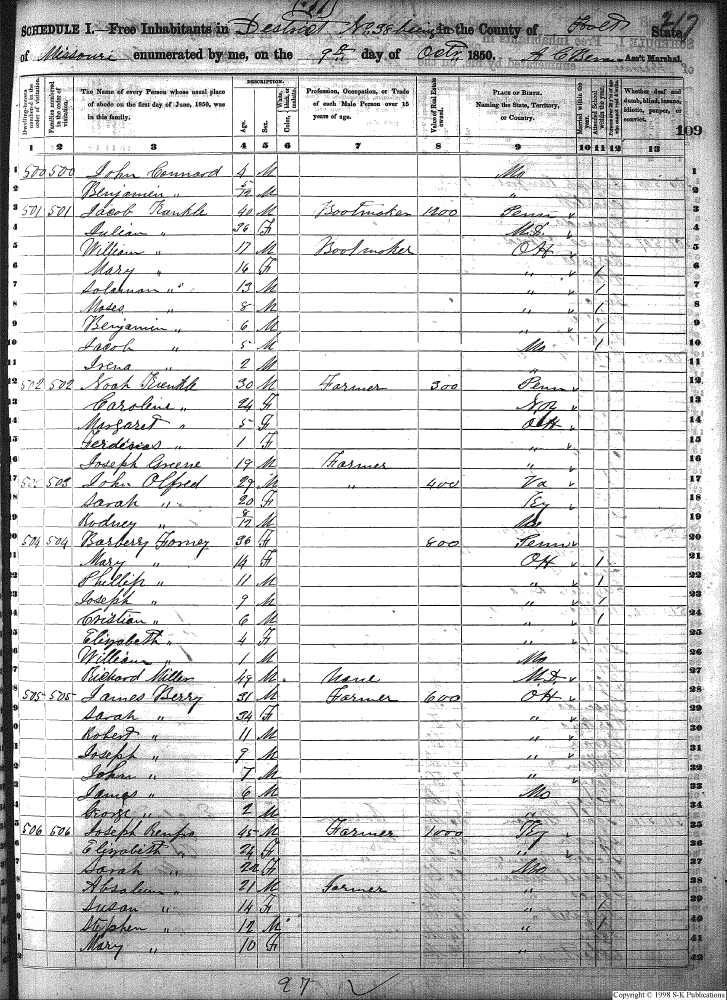 217
SCHEDULE I.—Free Inhabitants in District No. 38 being in the County of Holt State
of Missouri enumerated by me, on the 9th day of Octr 1850. Ass't Marshal.
Dwelling-houses numbered in the order of visitation.
Families numbered in the order of visitation.
The Name of every Person whose usual place of abode on the first day of June, 1850, was in this family.
DESCRIPTION.
Age.
Sex.
White, black, or mulatto.
Profession, Occupation, or Trade of each Male Person over 15 years of age.
Value of Real Estate owned.
PLACE OF BIRTH. Naming the State, Territory, or Country.
Married within the year.
Attended School within the year.
Whether deaf and dumb, blind, insane, idiotic, pauper, or convict.
109
1 2 3 4 5 6 7 8 9 10 11 12 13
1 500 500 John Connard 4 M Mo 1
2 Benjamin " 5/12 M " 2
3 501 501 Jacob Kunkle 40 M Bootmaker 1200 Penn 3
4 Julian " 36 F M.D. 4
5 William " 17 M Bootmaker OH 5
6 Mary " 16 F " 1 6
7 Solamon " 13 M " 1 7
8 Moses " 8 M " 1 8
9 Benjamin " 6 M " 1 9
10 Jacob " 5 M Mo 1 10
11 Irena " 2 M " 11
12 502 502 Noah Kunkle 30 M Farmer 300 Penn 12
13 Caroline " 24 F N.Y. 13
14 Margaret " 5 F OH 14
15 " 1 F " 15
16 Joseph Greene 19 M Farmer " 16
17 503 John Olfred 29 M " 400 Va 17
18 Sarah " 20 F Ky 18
19 Rodney " 8/12 M Mo 19
20 504 504 Barberry Forney 36 F 800 Penn 20
21 Mary " 14 F OH 1 21
22 Phillip " 11 M " 1 22
23 Joseph " 9 M " 1 23
24 Cristian " 6 M " 1 24
25 Elizabeth " 4 F " 25
26 William " 1 M Mo 26
27 Richard Miller 49 M None M.D. 27
28 505 505 James Berry 31 M Farmer 600 OH 28
29 Sarah " 34 F " 29
30 Robert " 11 M " 30
31 Joseph " 9 M " 31
32 John " 7 M " 32
33 James " 6 M Mo 33
34 George " 2 M " 34
35 506 506 Joseph Renfro 45 M Farmer 1000 Ky 25
36 Elizabeth " F " 26
37 Sarah " 22 F Mo 27
38 Absalum " 21 M Farmer " 28
39 Susan " 14 F " 1 39
40 Stephen " 12 M " 1 40
41 Mary " 10 F " 41
42 42
97
Copyright © 1998 S-K Publications